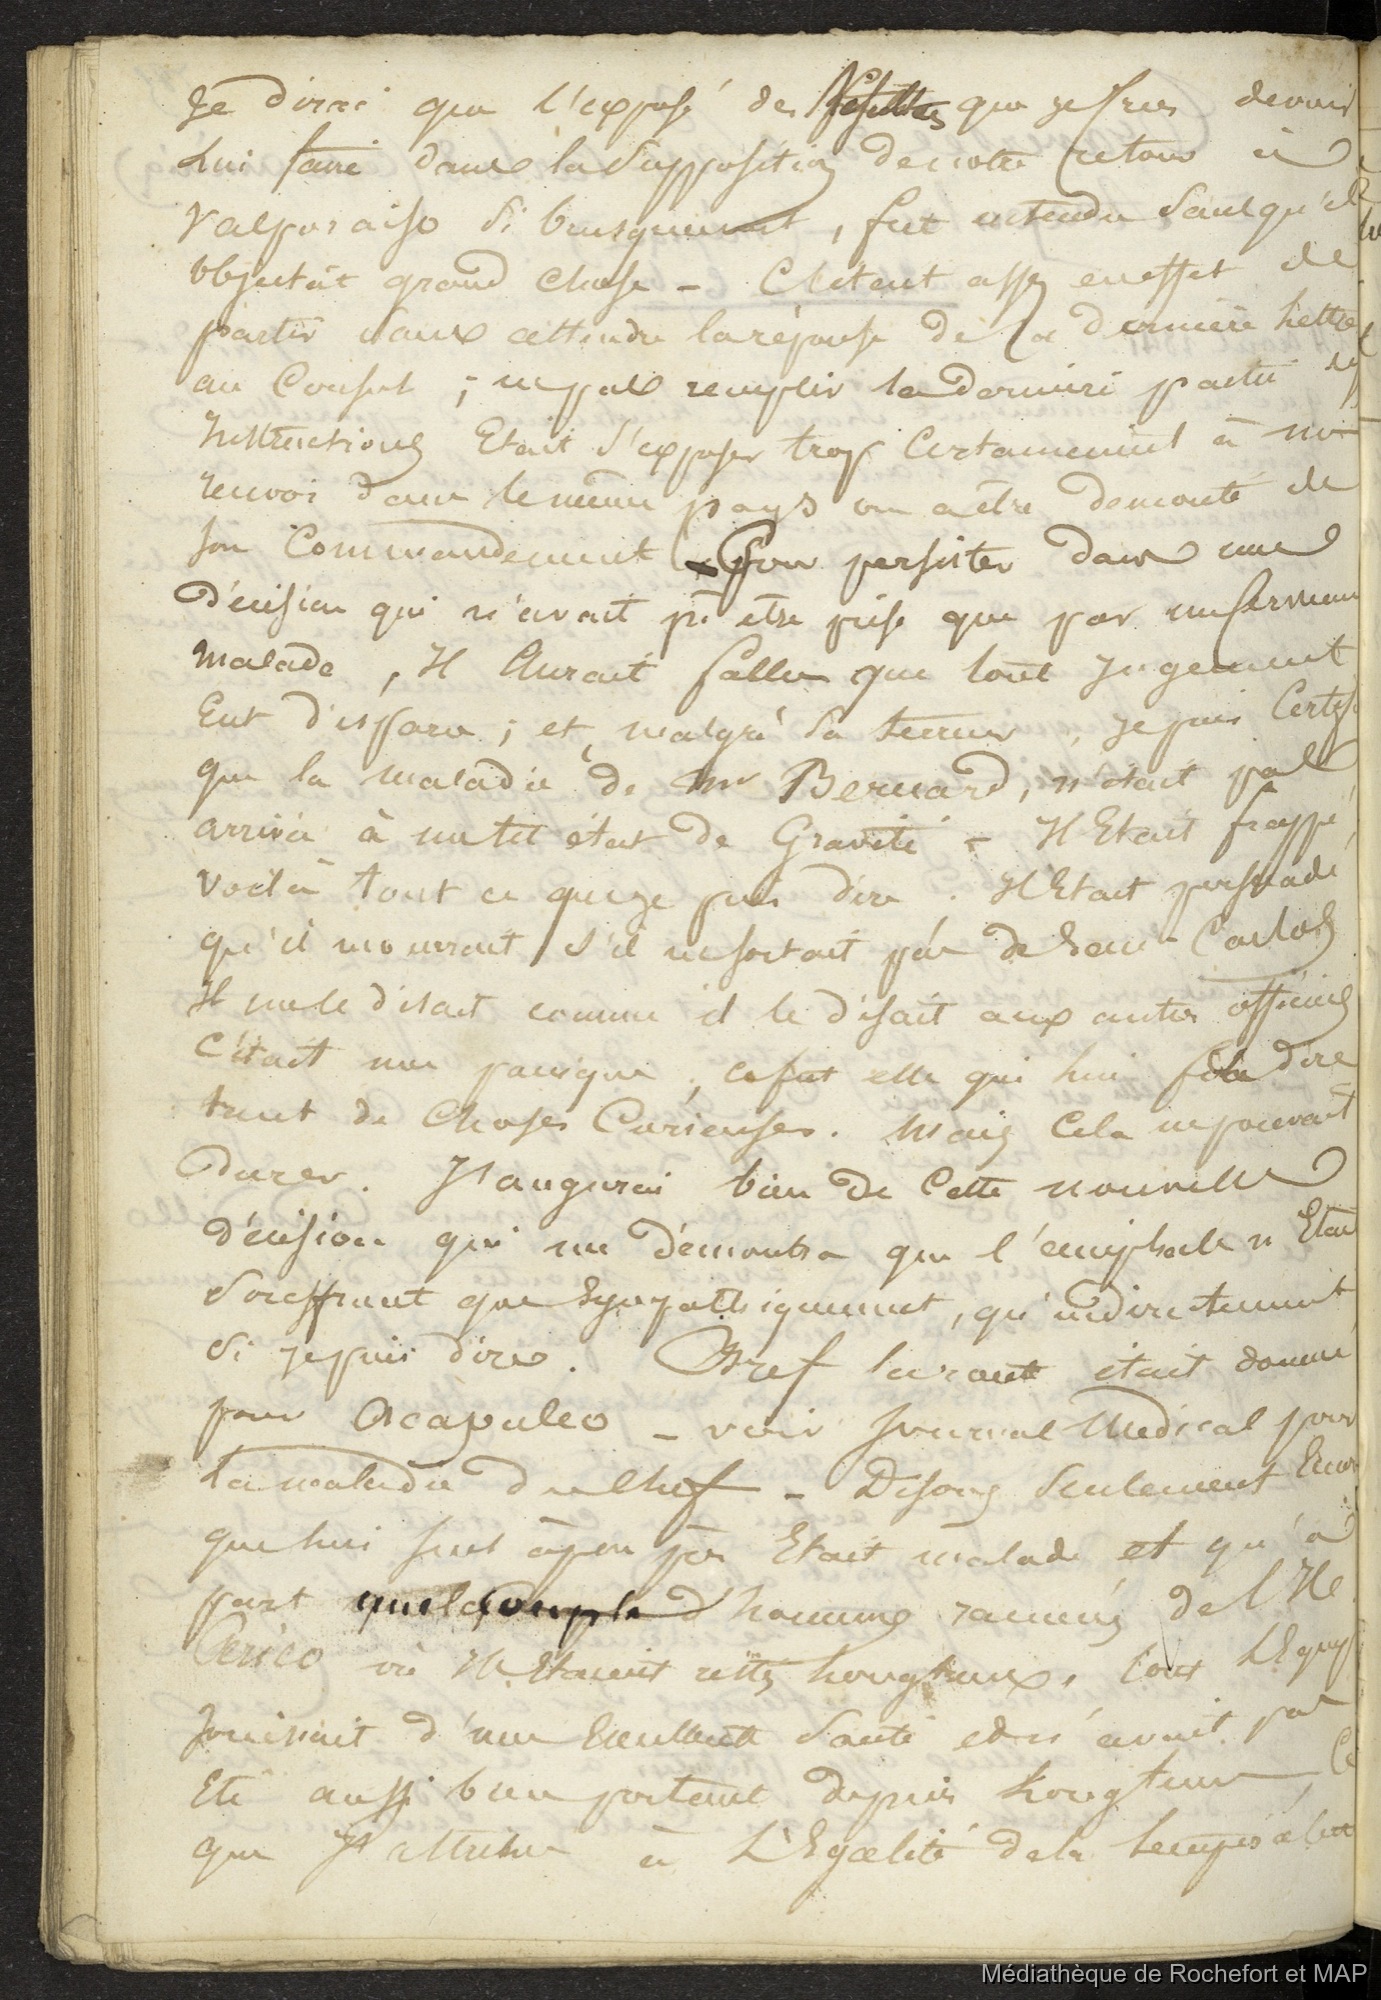 Je dirai que l'exposé des Résultats que je crus devoir
lui faire dans la Supposition de notre retour à
Valparaiso si brusquement, fut entendu sans qu'il
objectât grand chose - C'était assez en effet de
partir sans attendre la réponse de la dernière lettre
au Consul ; ne pas remplir la dernière partie des
Instructions Etait s'exposer trop Certainement à un
renvoi dans le même pays ou a être demonté de
son Commandement - Pour persister dans une
décision qui n'avait pû etre prise que par un Cerveau
malade, Il Aurait fallu que tout Jugement
Eut disparu ; et, malgré sa terreur, je puis Certifier
que la maladie de Mr Bernard, n'était pas
arrivée à un tel état de Gravité - Il Etait frappé,
Voilà tout ce que je puis dire. Il Etait persuadé
qu'il mourrait s'il ne sortait pas de San Carlos
Il me le disait comme il le disait aux autres officiers
C'était une panique, ce fut elle qui lui fit dire
tant de Choses Curieuses. Mais Cela ne pouvait
durer. J'augurai bien de Cette nouvelle
décision qui me démontra que l'encéphale n'Etait
Souffrant que Sympathiquement, qu'indirectement,
Si je puis dire. Bref la route était donnée
pour Acapulco - voir Journal Médical pour
la maladie du Chef - Disons Seulement Encore
que lui seul à peu près Etait malade et qu'à
part d'hommes ramenés de l'Ile
où Ils Etaient, tout l'Equipage
Jouissait d'une Excellente Santé et n'avait pas
Eté aussi bien portant depuis longtems, Ce
que J'attribue à L'Egalité de la température